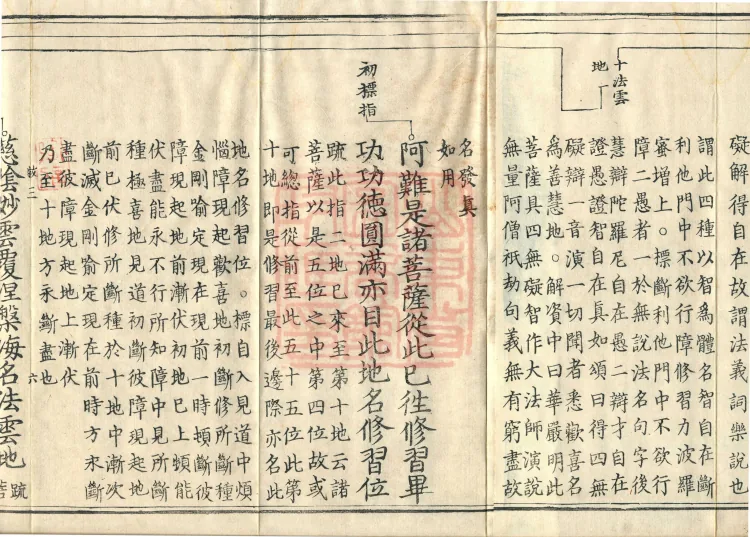 礙解得自在故謂法義詞樂說也
謂此四種以智為體名智自在斷
利他門中不欲行障修習力波羅
蜜增上。標斷利他門中不欲行
障二愚者一於無說法名句字後
慧辯陀羅尼自在愚二辯才自在
證愚證智自在真如頌曰得四無
礙辯一音演一切聞者悉歡喜名
為善慧地。解資中曰華嚴明此
菩薩具四無礙智作大法師演說
無量阿僧祇劫句義無有窮盡故
十法雲
地
名發真
如用
初標指
阿難是諸菩薩從此已往修習畢
功功德圓滿亦目此地名修習位
䟽此指二地已來至第十地云諸
菩薩以是五位之中第四位故或
可總指從前至此五十五位此第
十地即是修習最後邊際亦名此
地名修習位。標自入見道中煩
惱障現起歡喜地初斷修所斷種
金剛喻定現在現前一時頓斷彼
障現起地前漸伏初地已上頓能
伏盡能永不行所知障中見所斷
種極喜地見道初斷彼障現起地
前已伏修所斷種於十地中漸次
斷滅金剛喻定現在前時方永斷
盡彼障現起地上漸伏
乃至十地方永斷盡也
六
慈陰妙雲覆涅槃海名法雲地
䟽